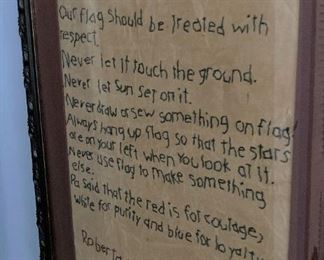 Our flag should be Treated with
respect.
Never let it touch the ground.
Never let Sun set on it.
Never draw or sew something on flag!
Always hang up flag so that the stars
are on your left when you look at it.
Never use flag to make something
else.
Pa said that the red is for courage,
while for purity and blue for loyalty
Roberta